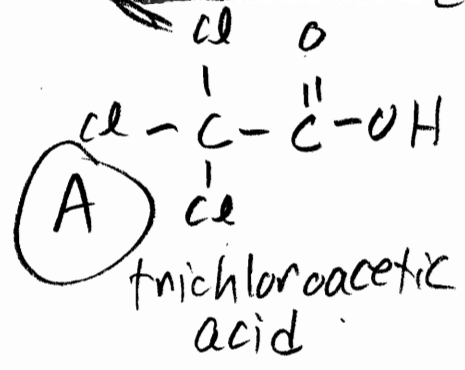 Cl O
Cl - C - C - OH
A Cl
trichloroacetic
acid